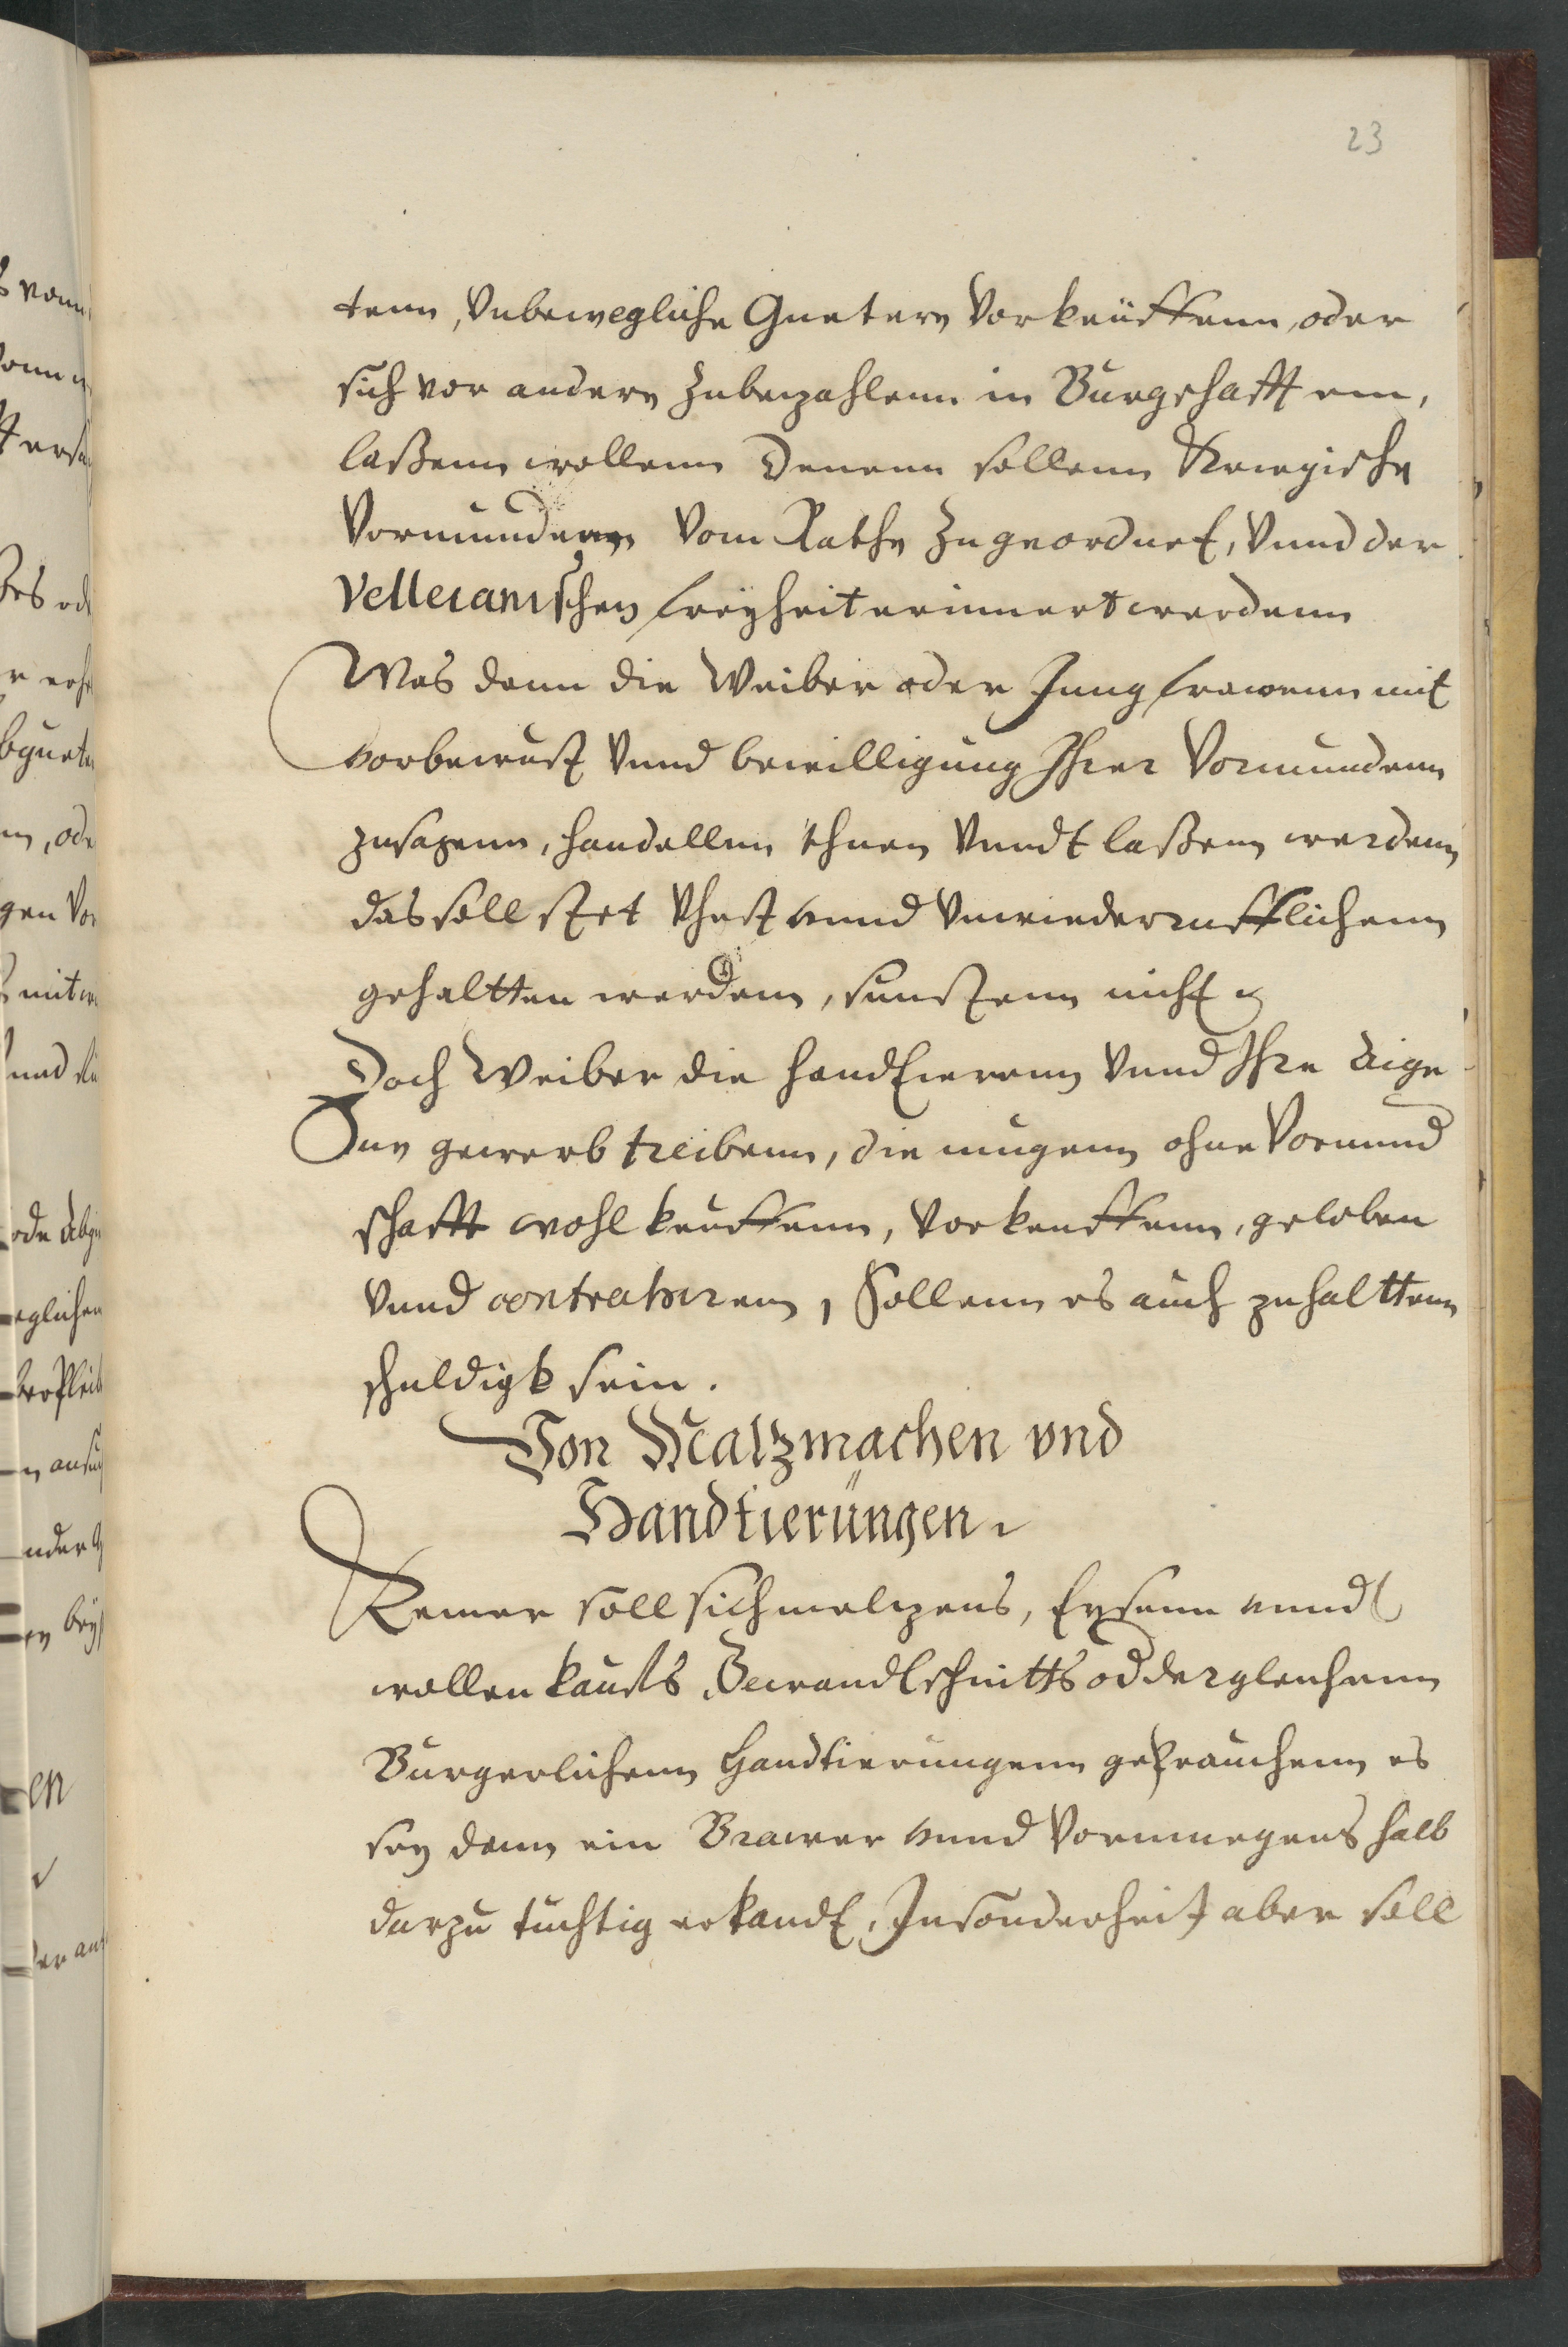 23
tenn, Vnbewegliche Guetere Vorkeüffenn, oder
sich vor andern Zubezahlenn in Burgschafft ein,
laßenn wollenn Denenn sollenn Kriegische
Vormundenn Vom Rathe Zugeordnet, Vnnd der
Velleianischen freyheit erinnert werdenn
Was dann die Weiber oder Jungfrawenn mit
vorbewust Vnnd bewilligung Ihrer Vormundenn
zusagenn, handellnn thuen Vnndt laßenn werdenn
das soll stet Vhest vnnd Vnwiederrufflichenn
gehaltten werdenn, sunstenn nicht
Doch Weiber die handtierenn Vnnd Ihre Eige-
ne gewerb treibenn, die mugenn ohne Vormund
schafft wohl keuffenn, Vorkeuffenn, geloben
Vnnd contrahirenn, Sollenn es auch zuhalttenn
schuldigk sein.
Von Malzmachen vnd
Handtierüngen.
Keiner soll sich meltzens, Eysenn vnndt
wollen kauffs, Gewandtschnitts od dergleichenn
Burgerlichenn Handtierungenn gebrauchenn es
sey dann ein Brawer vnnd Vormuegens halb
darzu tuchtig erkandt, Insonderheit aber soll